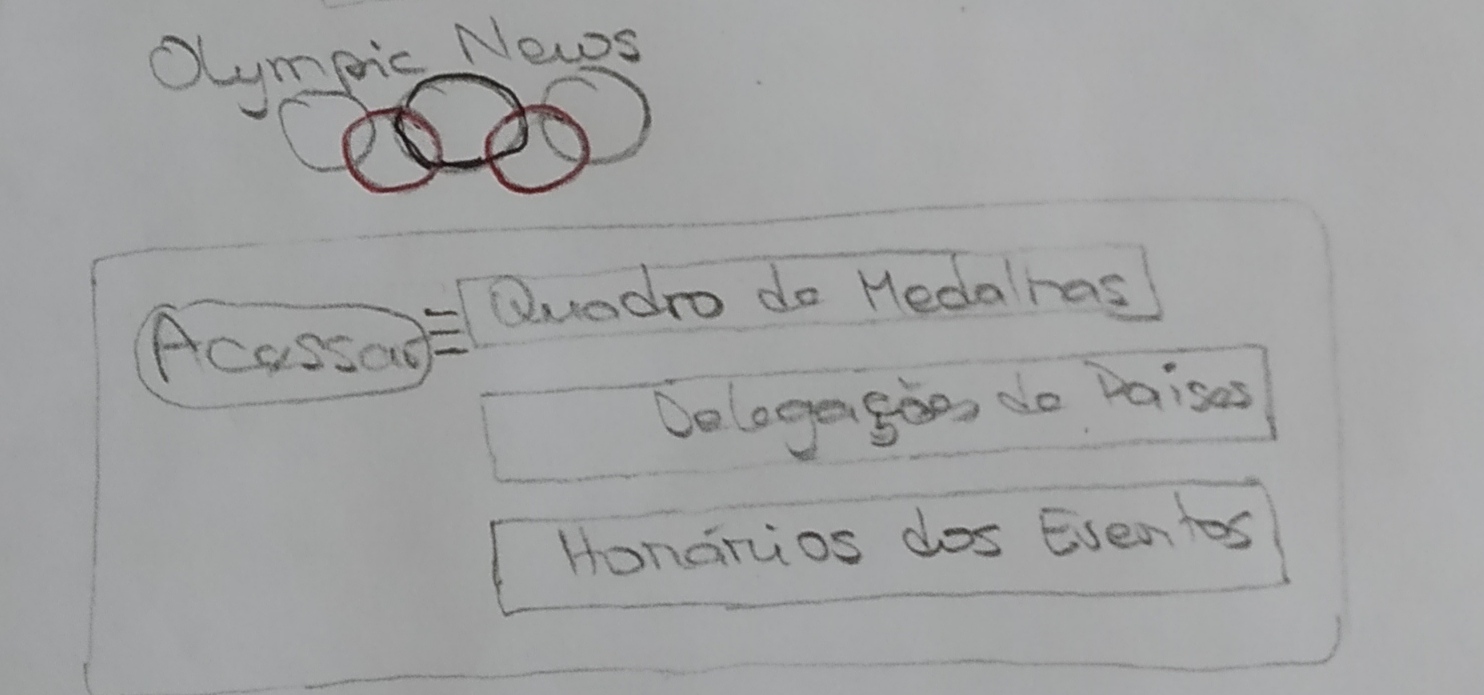 Olympic News
Acessar
Quadro de Medalhas
Delegações de Paises
Horários dos Eventos